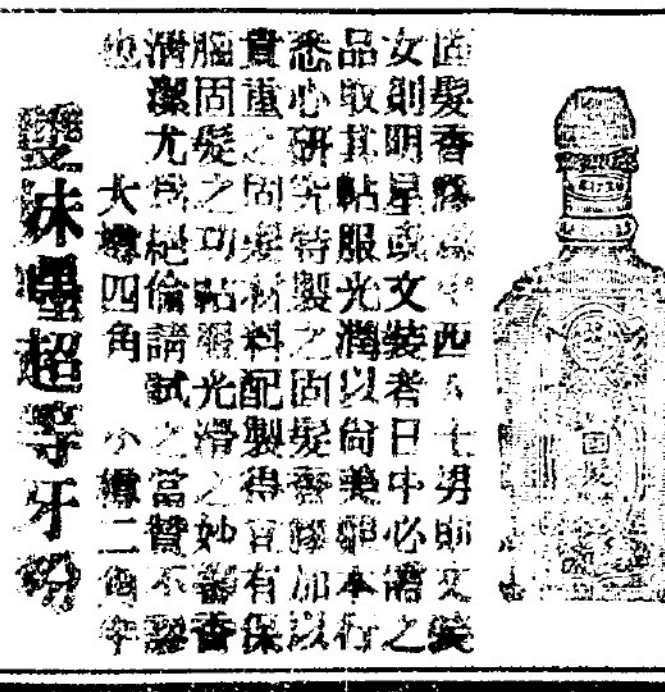 固髮香膠為中西人士男師文裝
女則明星或女裝者日中必需之
品取其帖服光潤以尚美觀本行
悉心研究特製之固髮香膠加以
貴重之固髮材料配製得宜有保
腦固髮之功帖服光滑之妙馨香
清潔尤為絕倫請試之當贊不謬
也 大罇四角 小罇二角半
雙妹嚜超等牙粉
固髮